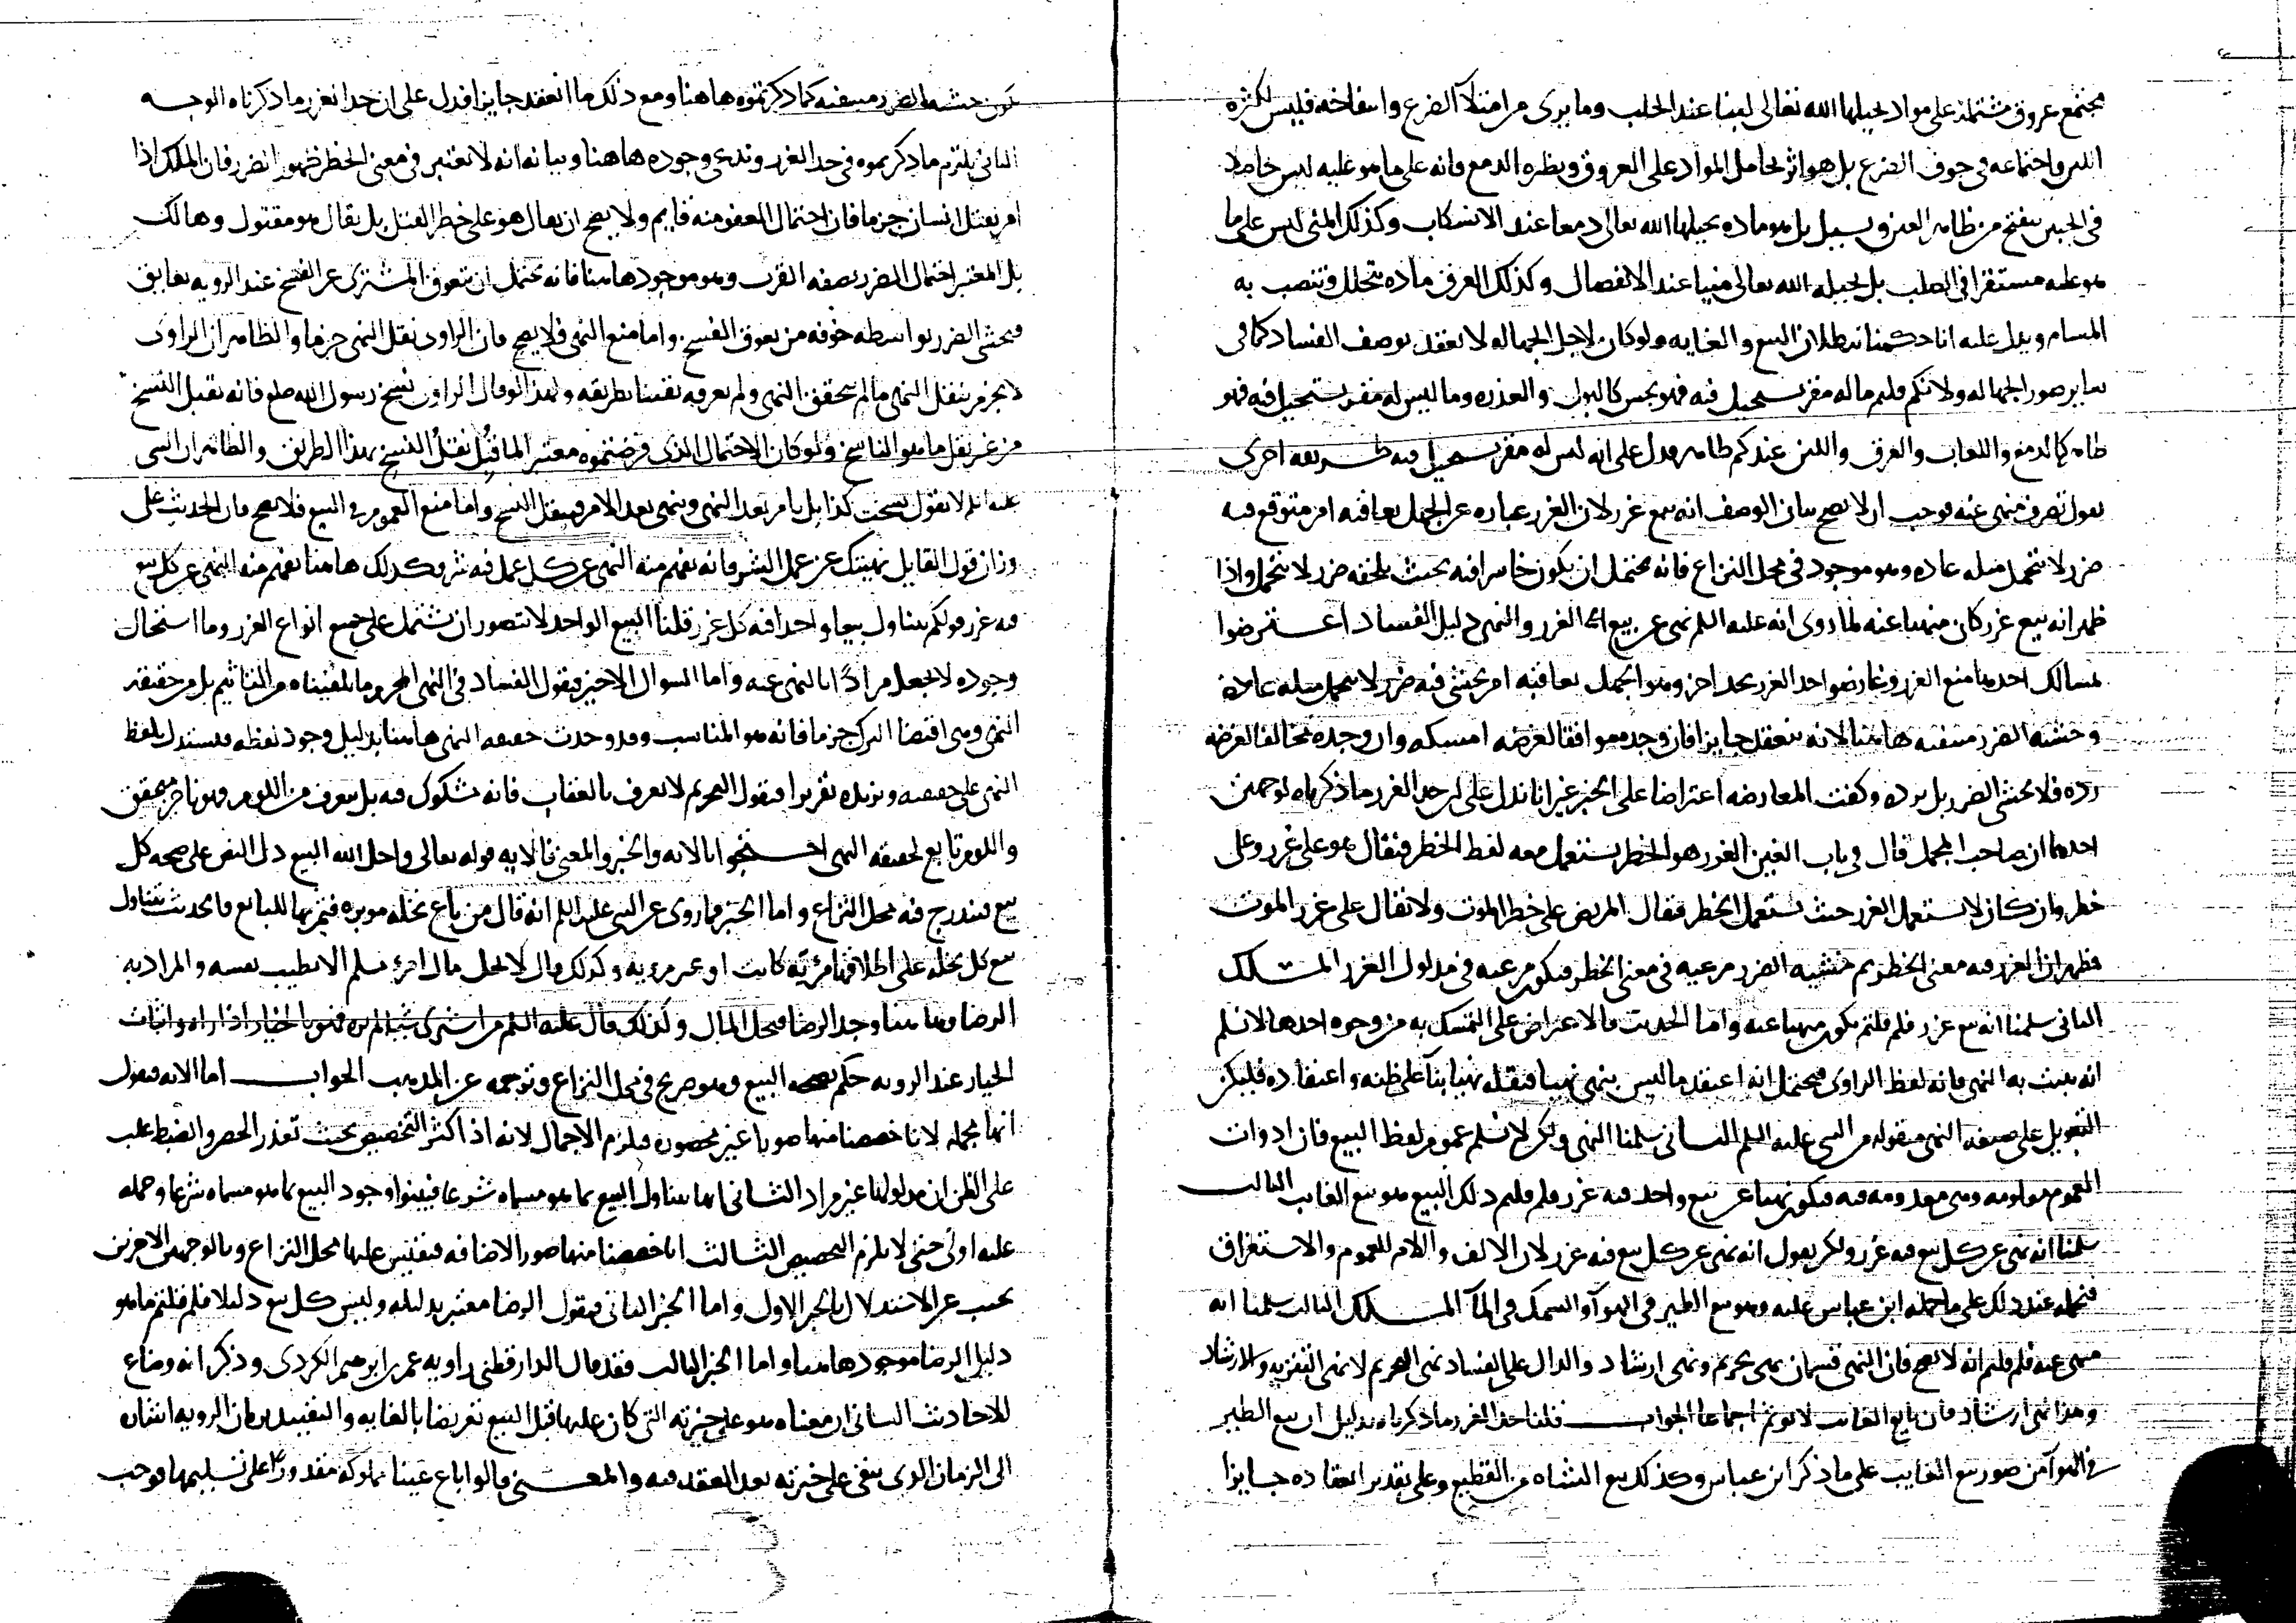 مجتمع عروق مشتملة على مواد يحيلها الله تعالى لبنا عند الحلب وما يرى من امتلاء الضرع وانتفاخه فليس لكثرة
اللبن واجتماعه في جوف الضرع بل هو اثر تحامل المواد على العروق ونظيره الدمع فانه على ما هو عليه ليس حاصلا
في الجبين ينفتح من ظاهر العين ويسيل بل هو ماده يحيلها الله تعالى دمعا عند الانسكاب وكذلك المني ليس على ما
هو عليه مستقرا في الصلب بل يحيله الله تعالى منيا عند الانفصال وكذلك العرق ماده تتحلل وتنصب به
المسام ويدل عليه انا حكمنا ببطلان البيع والغايه ولو كان لاجل الجهاله لانعقد بوصف الفساد كما في
سائر صور الجهاله ولانكم قلتم ما له مقر يستحيل فيه فهو نجس كالبول والعذره وما ليس له مقر يستحيل فيه فهو
طاهر كالدمع واللعاب والعرق واللبن عندكم طاهر فدل على انه ليس له مقر يستحيل فيه طريقه اخرى
نقول تصرف منهي عنه فوجب ان لا يصح بيان الوصف انه بيع غرر لان الغرر عباره عن الجهل بعاقبه امر متوقع فيه
ضرر لا يتحمل مثله عاده وهو موجود في محل النزاع فانه يحتمل ان يكون خاسرا فيه بحيث يلحقه ضرر لا يتحمل واذا
ظهر انه بيع غرر كان منهيا عنه لما روى انه عليه السلم نهى عن بيع الغرر والنهي دليل الفساد اعترضوا
لمسالك احدها منع الغرر وعارضوا حد الغرر بحد اخر وهو الجهل بعاقبه امر يخشى فيه ضرر لا يتحمل مثله عادة
وخشيه الضرر منتفيه هاهنا لانه ينعقد جايزا فان وجده موافقا لغرضه امسكه وان وجده مخالفا لغرضه
رده فلا يخشى الضرر بل يرده وكفت المعارضه اعتراضا على الخبر غير انا ندل على ان حد الغرر ما ذكرناه لوجهين
احدهما ان صاحب المجمل قال في باب الغين الغرر هو الخطر يستعمل معه لفظ الخطر فيقال هو على غرر وعلى
خطر وان كان لا يستعمل الغرر حيث يستعمل الخطر فيقال المريض على خطر الموت ولا يقال على غرر الموت
فظهر ان الغرر فيه معنى الخطر ثم خشيه الضرر مرعيه في معنى الخطر فيكون مرعيه في مدلول الغرر المسلك
الثاني سلمنا انه بيع غرر فلم قلتم يكون منهيا عنه واما الحديث فالاعتراض على التمسك به من وجوه احدها لا نسلم
انه يثبت به النهي فانه لفظ الراوي فيحتمل انه اعتقد ما ليس بنهي نهيا فنقله نهيا بناء على ظنه واعتقاده فليكن
التعويل على صيغه النهي منقوله من النبي عليه السلم الثاني سلمنا النهي ولكن لم نسلم عموم لفظ البيع فان ادوات
العموم معلومه وهي معدومه فيه فيكون نهيا عن بيع واحد فيه غرر فلم قلتم ذلك البيع هو بيع الغايب الثالث
سلمنا انه نهى عن كل بيع فيه غرر ولكن نقول انه نهى عن كل بيع فيه غرر لان الالف واللام للعموم والاستغراق
فنحمله عند ذلك على ما حمله ابن عباس عليه وهو بيع الطير في الهوآ والسمك في المآ المسلك الثالث سلمنا انه
منهي عنه فلم قلتم انه لا يصح فان النهي قسمان نهى تحريم ونهى ارشاد والدال على الفساد نهى التحريم لا نهى التنزيه والارشاد
وهذا نهي ارشاد فان بايع الغايب لا يوثم اجماعا الجواب قلنا حد الغرر ما ذكرناه بدليل ان بيع الطير
في الهوآ من صور بيع الغايب على ما ذكر ابن عباس وكذلك بيع الشاه من القطيع وعلى تقدير انعقاده جايزا
تكون خشيه الضرر منتفيه كما ذكرتموه هاهنا ومع ذلك ما انعقد جايزا فدل على ان حد الغرر ما ذكرناه الوجه
الثاني نلتزم ما ذكرتموه في حد الغرر وندعي وجوده هاهنا وبيانه انه لا نعتبر في معنى الخطر ظهور الضرر فان الملك اذا
امر بقتل انسان جزما فان احتمال العفو منه قايم ولا يصح ان يقال هو على خطر القتل بل يقال هو مقتول وهالك
بل المعتبر احتمال الضرر بصفه القرب وهو موجود هاهنا فانه يحتمل ان يعوق المشتري عن الفسخ عند الرويه عايق
فيخشى الضرر بواسطه خوفه من يعوق الفسخ واما منع النهي فلا يصح فان الراوي نقل النهي جزما والظاهر ان الراوي
لا يجزم بنقل النهي ما لم يتحقق النهي ولم يعرفه يقينا بطريقه ولهذا لو قال الراوي نسخ رسول الله صلعم فانه نقبل النسخ
من غير نقل ما هو الناسخ ولو كان الاحتمال الذي فرضتموه معتبرا لما قبل نقل النسخ بهذا الطريق والظاهر ان النبي
عليه السلم لا يقول نسخت كذا بل يامر بعد النهي وينهى بعد الامر فينقل النسخ واما منع العموم في البيع فلا يصح فان الحديث على
وزان قول القايل نهيتك عن عمل الشر فانه يفهم منه النهي عن كل عمل فيه شر فكذلك هاهنا يفهم منه النهي عن كل بيع
فيه غرر قولكم يتناول بيعا واحدا فيه كل غرر قلنا البيع الواحد لا يتصور ان يشتمل على جميع انواع الغرر وما استحال
وجوده لا يجعل مرادا بالنهي عنه واما السوال الاخير فنقول الفساد في النهي المجرد ما تلقيناه من التاثيم بل من حقيقه
النهي وهي اقتضا الترك جزما فانه هو المناسب وقد وجدت حقيقه النهي هاهنا بدليل وجود لفظه فيستدل بلفظ
النهي على حقيقته ونزيده تقريرا فنقول التحريم لا يعرف بالعقاب فانه مشكوك فيه بل يعرف من اللوم
واللوم تابع لحقيقه النهي احتجوا بالايه والخبر والمعنى فالايه قوله تعالى واحل الله البيع دل النص على صحه كل
بيع فيندرج فيه محل النزاع واما الخبر فما روى عن النبي عليه السلم انه قال من باع نخله موبره فثمرتها للبايع فالحديث يتناول
بيع كل نخله على اطلاقها مرئيه كانت او غير مرئيه وكذلك قال لا يحل مال امرئ مسلم الا بطيب نفسه والمراد به
الرضا وهاهنا وجد الرضا فيحل المال وكذلك قال عليه السلم من اشترى شيئا لم يره فهو بالخيار اذا راه واثبات
الخيار عند الرويه حكم بصحه البيع وهو صريح في محل النزاع ونوجهه عن المذهب الجواب اما الايه فنقول
انها مجمله لانا خصصنا منها صورا غير محصوره فيلزم الاجمال لانه اذا كثر التخصيص بحيث تعذر الحصر والضبط غلب
على الظن ان مدلولها غير مراد الثاني انها تتناول البيع بما هو مسماه شرعا فبينوا وجود البيع بما هو مسماه شرعا وحمله
عليه اولى حتى لا يلزم التخصيص الثالث انا خصصنا منها صور الاضافه فنقيس عليها محل النزاع وبالوجهين الاخرين
نجيب عن الاستدلال بالخبر الاول واما الخبر الثاني فنقول الرضا معتبر بدليله وليس كل بيع دليلا فلم قلتم ما هو
دليل الرضا موجود هاهنا واما الخبر الثالث فقد قال الدارقطني راويه عمر بن ابرهيم الكردي وذكر انه وضاع
للاحاديث الثاني ان معناه هو على خيرته التي كان عليها قبل البيع تعريضا بالغايه والتقييد بزمان الرويه اشاره
الى الزمان الذي يبقى على خيرته بعد العقد فيه والمعنى قالوا باع عينا مملوكه مقدورا على تسليمها فوجب